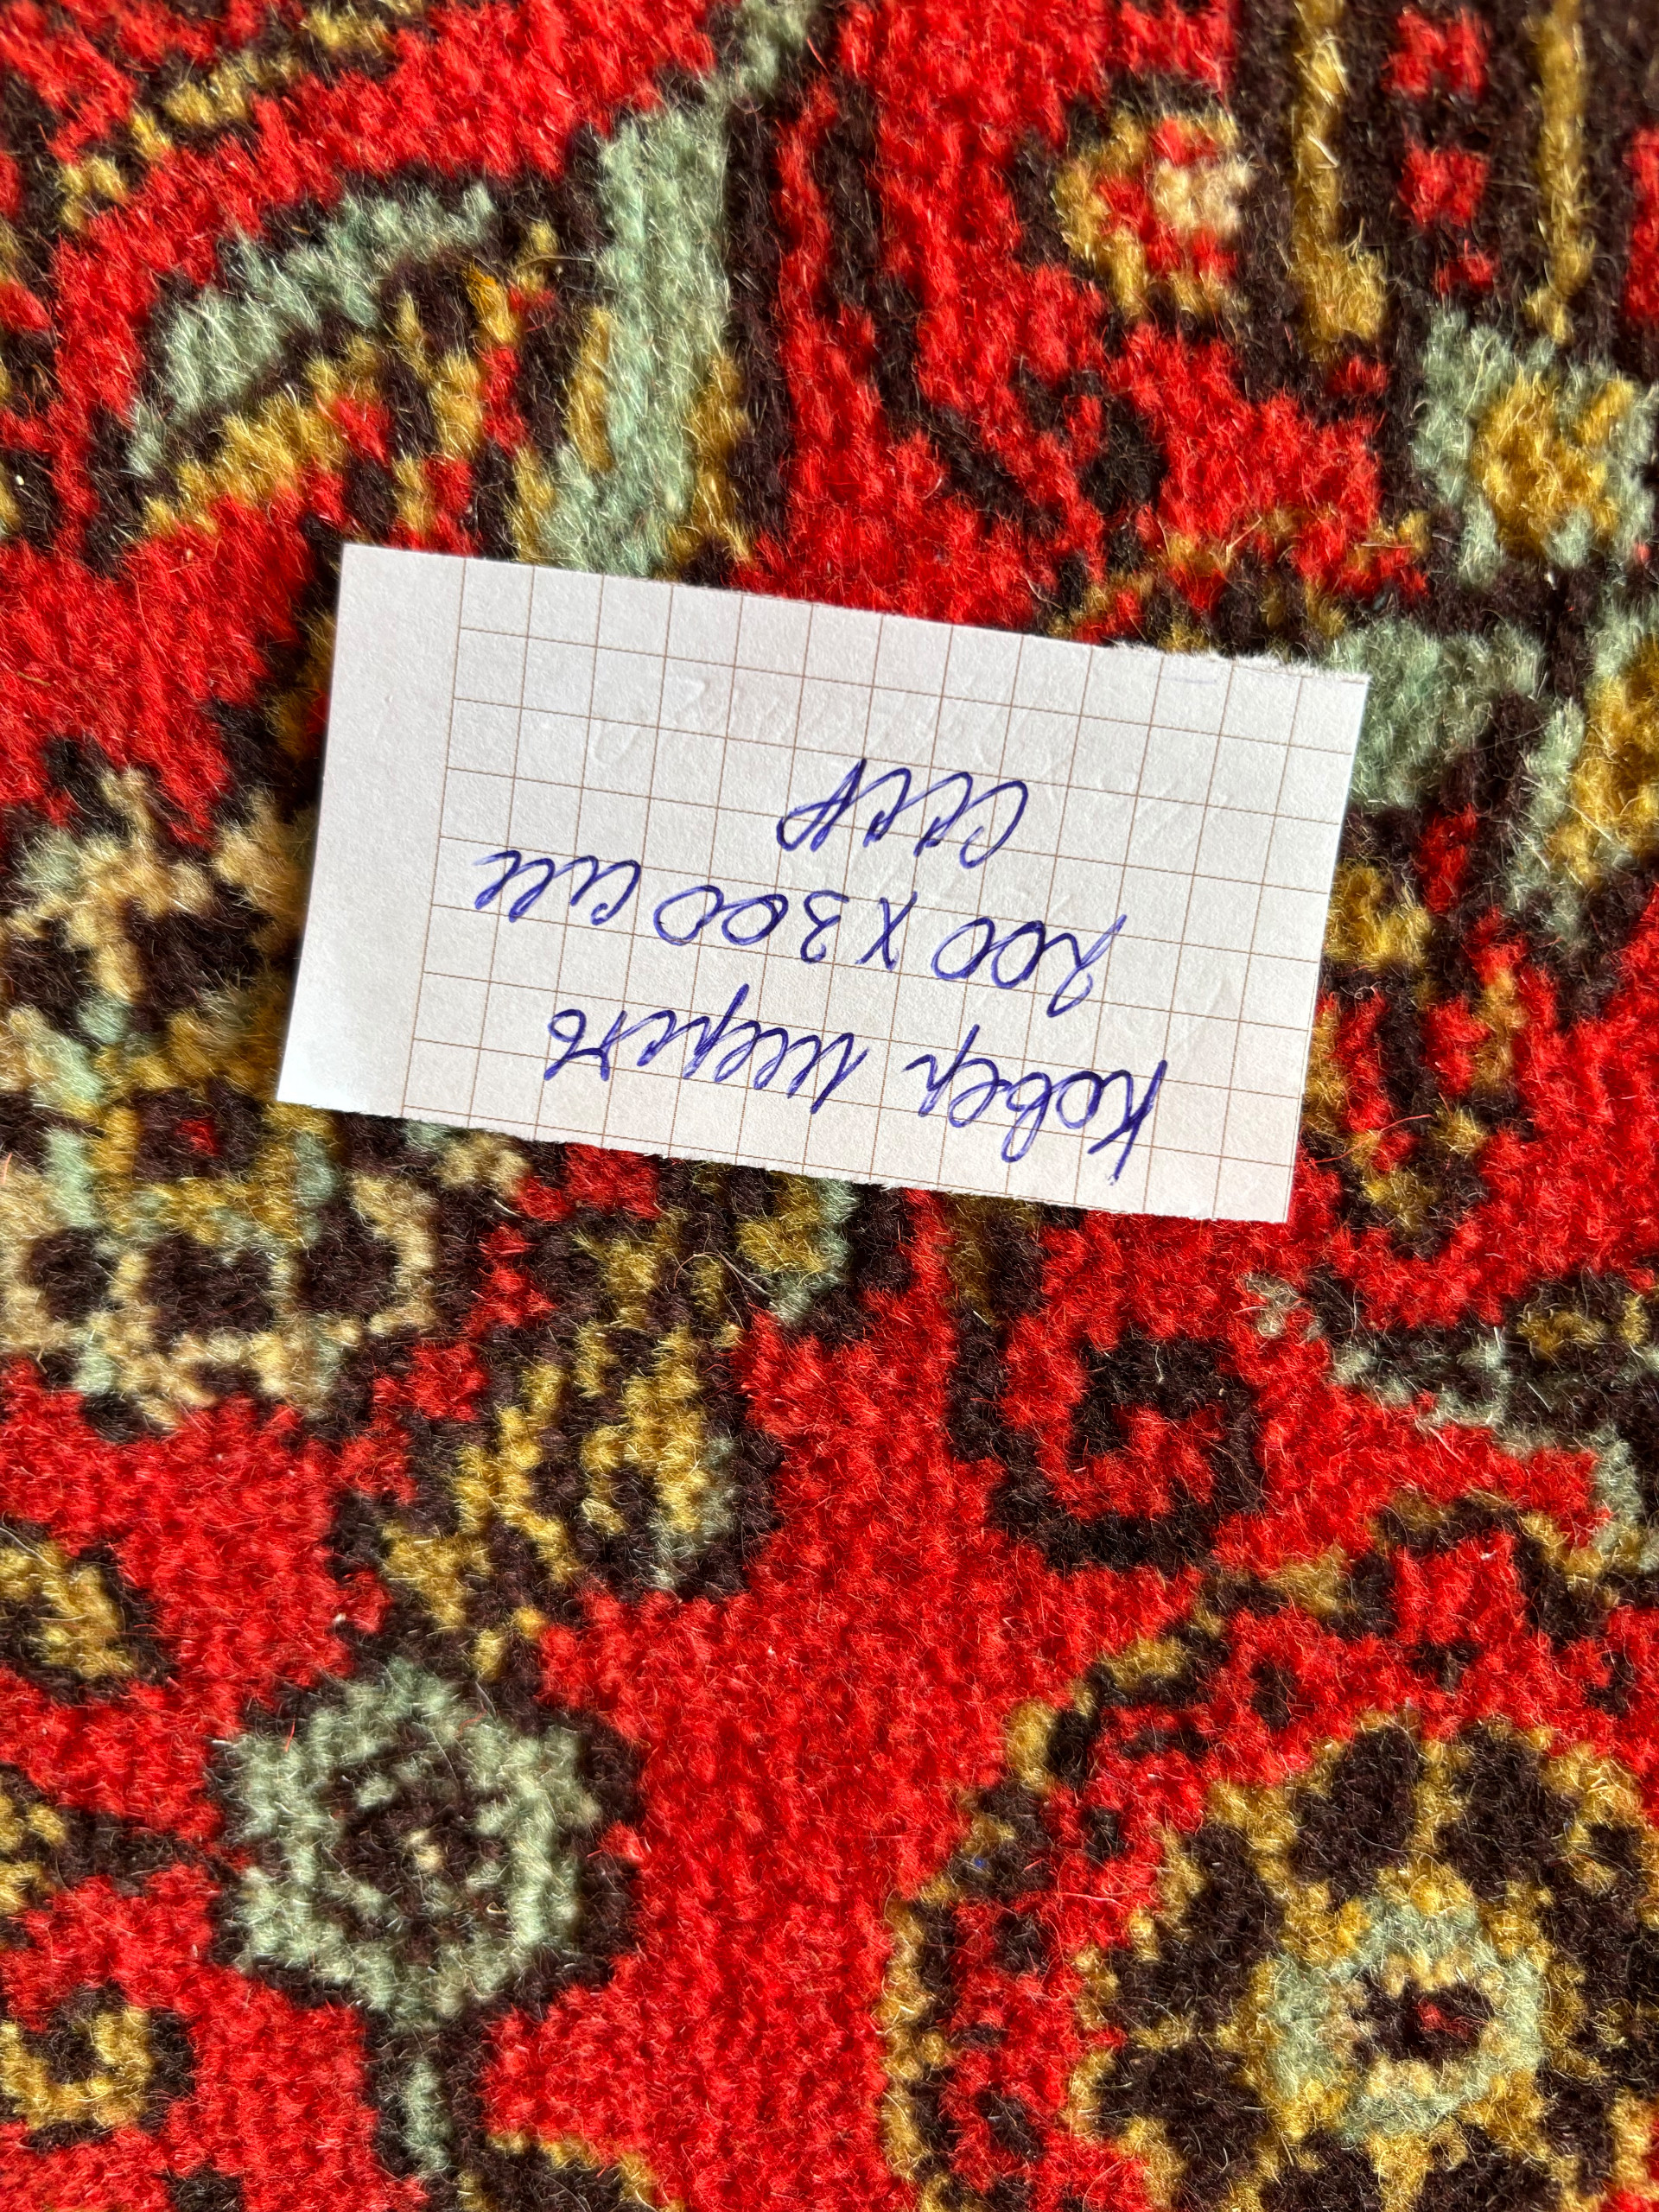 Ковер шерсть
200 х 300 см
СССР